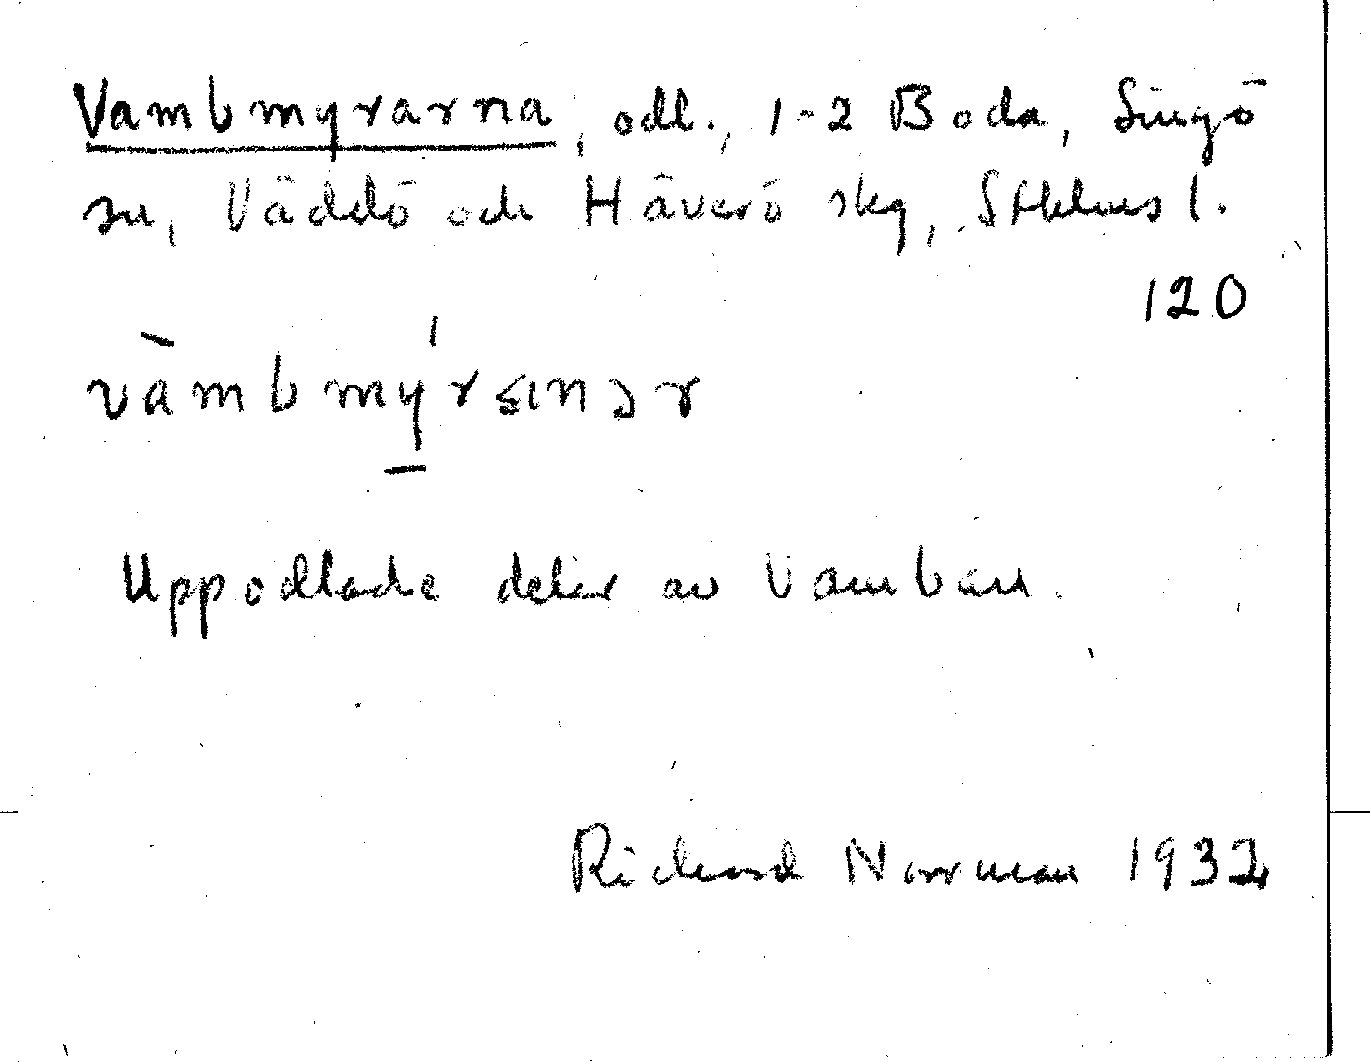 Vambmyrarna, odl., 1-2 Boda, Singö
sn, Väddö och Häverö skg, Sthlms l.
120
vàmbmýrεınər
Uppodlade delar av Vamben.
Richard Norrman 1932